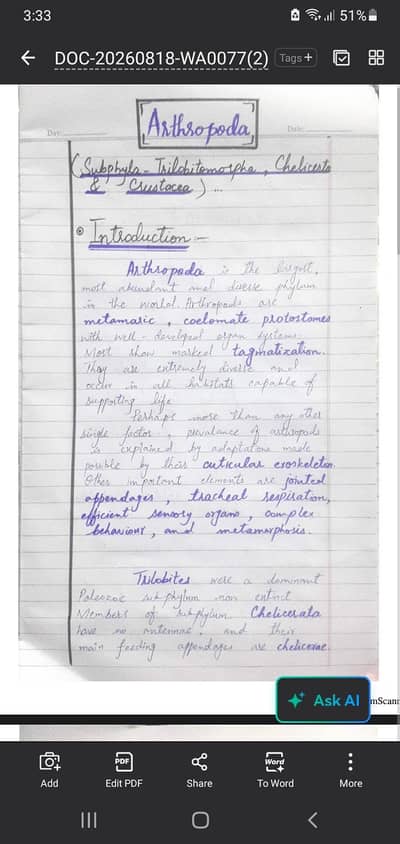 3:33
51%
DOC-20260818-WA0077(2) Tags +
Day: Date:
Arthropoda
(Subphyla - Trilobitomorpha, Chelicerata
& Crustacea) ...
Introduction :-
Arthropoda is the largest,
most abundant and diverse phylum
in the world. Arthropods are
metamaric, coelomate protostomes
with well - developed organ systems.
Most show marked tagmatization.
They are extremely diverse and
occur in all habitats capable of
supporting life.
Perhaps more than any other
single factor, prevalance of arthropods
is explained by adaptations made
possible by their cuticular exoskeleton.
Other important elements are jointed
appendages, tracheal respiration,
efficient sensory organs, complex
behaviour, and metamorphosis.
Trilobites were a dominant
Paleozoic subphylum now extinct
Members of subphylum Chelicerata
have no antennae, and their
main feeding appendages are chelicerae.
Ask AI
Add Edit PDF Share To Word More
PDF Word